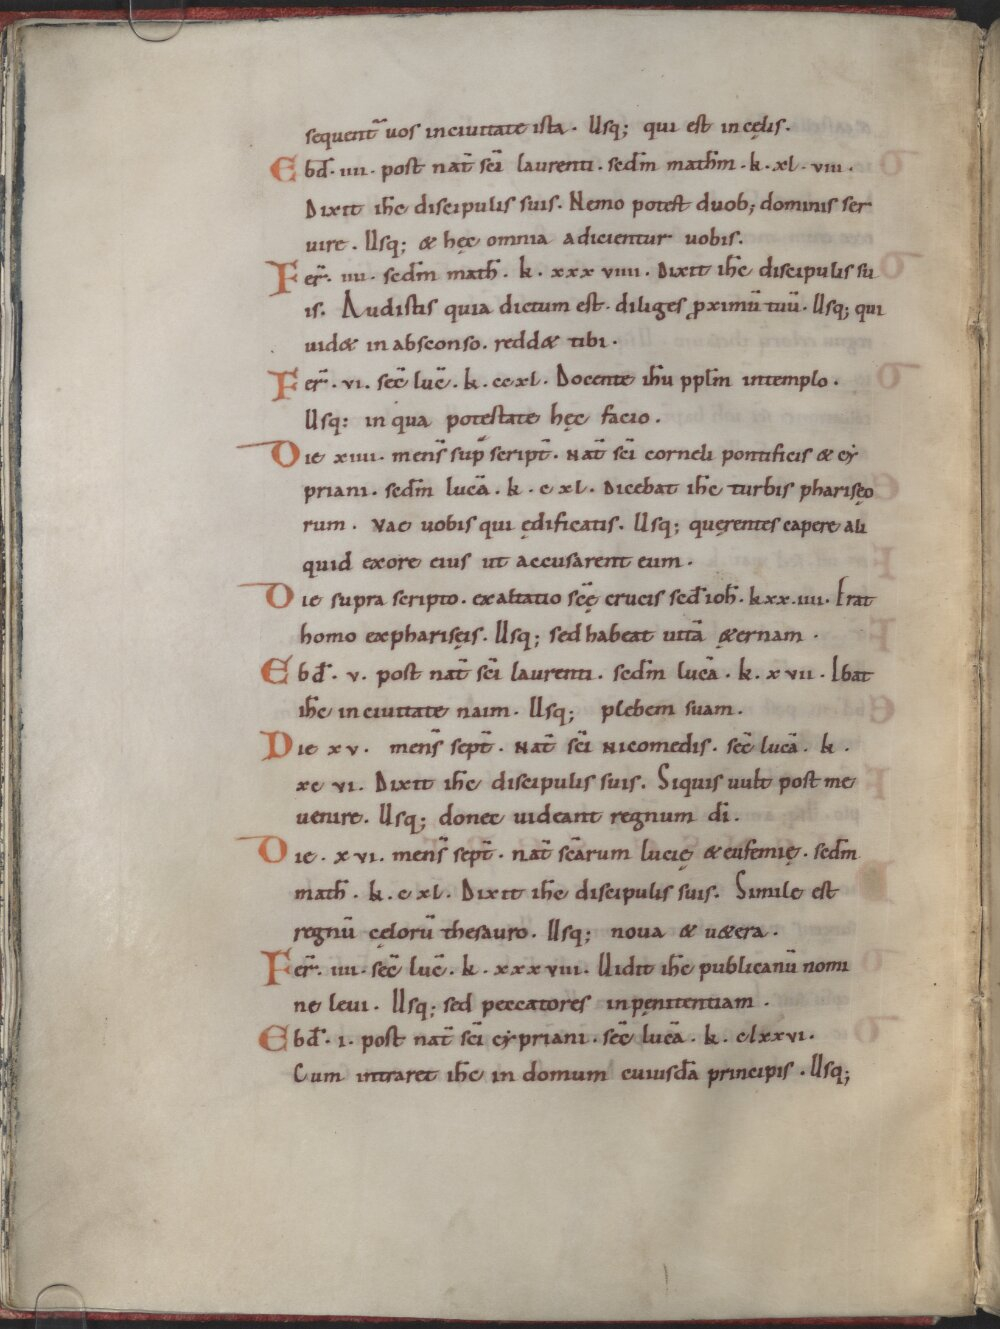 sequent̄ uos inciuitate ista. Usq; qui est incęlis.
Ebd̄. iiii. post nat̄ sc̄i laurenti. sed̄m math̄m. k. xl. viii.
Dixit ih̄c discipulis suis. Nemo potest duob; dominis ser
uire. Usq; & hęc omnia adicientur uobis.
Fer̄. iiii. sed̄m math̄. k. xxxviiii. Dixit ih̄c discipulis su
is. Audistis quia dictum est. diliges ꝓximū tuū. Usq; qui
uid& in absconso. redd& tibi.
Fer̄. vi. sec̄ luc̄. k. ccxl. Docente ih̄u ppl̄m intemplo.
Usq: in qua potestate hęc facio.
Die xiiii. mens̄ sup̄ script̄. nat̄ sc̄i corneli pontificis & cẏ
priani. sed̄m lucā. k. c xl. Dicebat ih̄c turbis phariseo
rum. Vae uobis qui ędificatis. Usq; quęrentes capere ali
quid exore eius ut accusarent eum.
Die supra scripto. exaltatio sc̄ę crucis sed̄ ioh̄. k xx. iiii. Erat
homo expharisęis. Usq; sed habeat uitā &ernam.
Ebd̄. v. post nat̄ sc̄i laurenti. sed̄m lucā. k. xvii. Ibat
ih̄c inciuitate naim. Usq; plebem suam.
Die xv. mens̄ sept̄. nat̄ sc̄i nicomedis. sec̄ lucā. k.
xc vi. Dixit ih̄c discipulis suis. Siquis uult post me
uenire. Usq; donec uideant regnum dī.
Die. xvi. mens̄ sept̄. nat̄ sc̄arum lucię & eufemię. sed̄m
math̄. k. c xl. Dixit ih̄c discipulis suis. Simile est
regnū cęlorū thesauro. Usq; noua & u&era.
Fer̄. iiii. sec̄ luc̄. k. xxxviii. Uidit ih̄c publicanū nomi
ne leui. Usq; sed peccatores inpęnitentiam.
Ebd̄. i. post nat̄ sc̄i cẏpriani. sec̄ lucā. k. clxxvi.
Cum intraret ih̄c in domum cuiusdā principis. Usq;